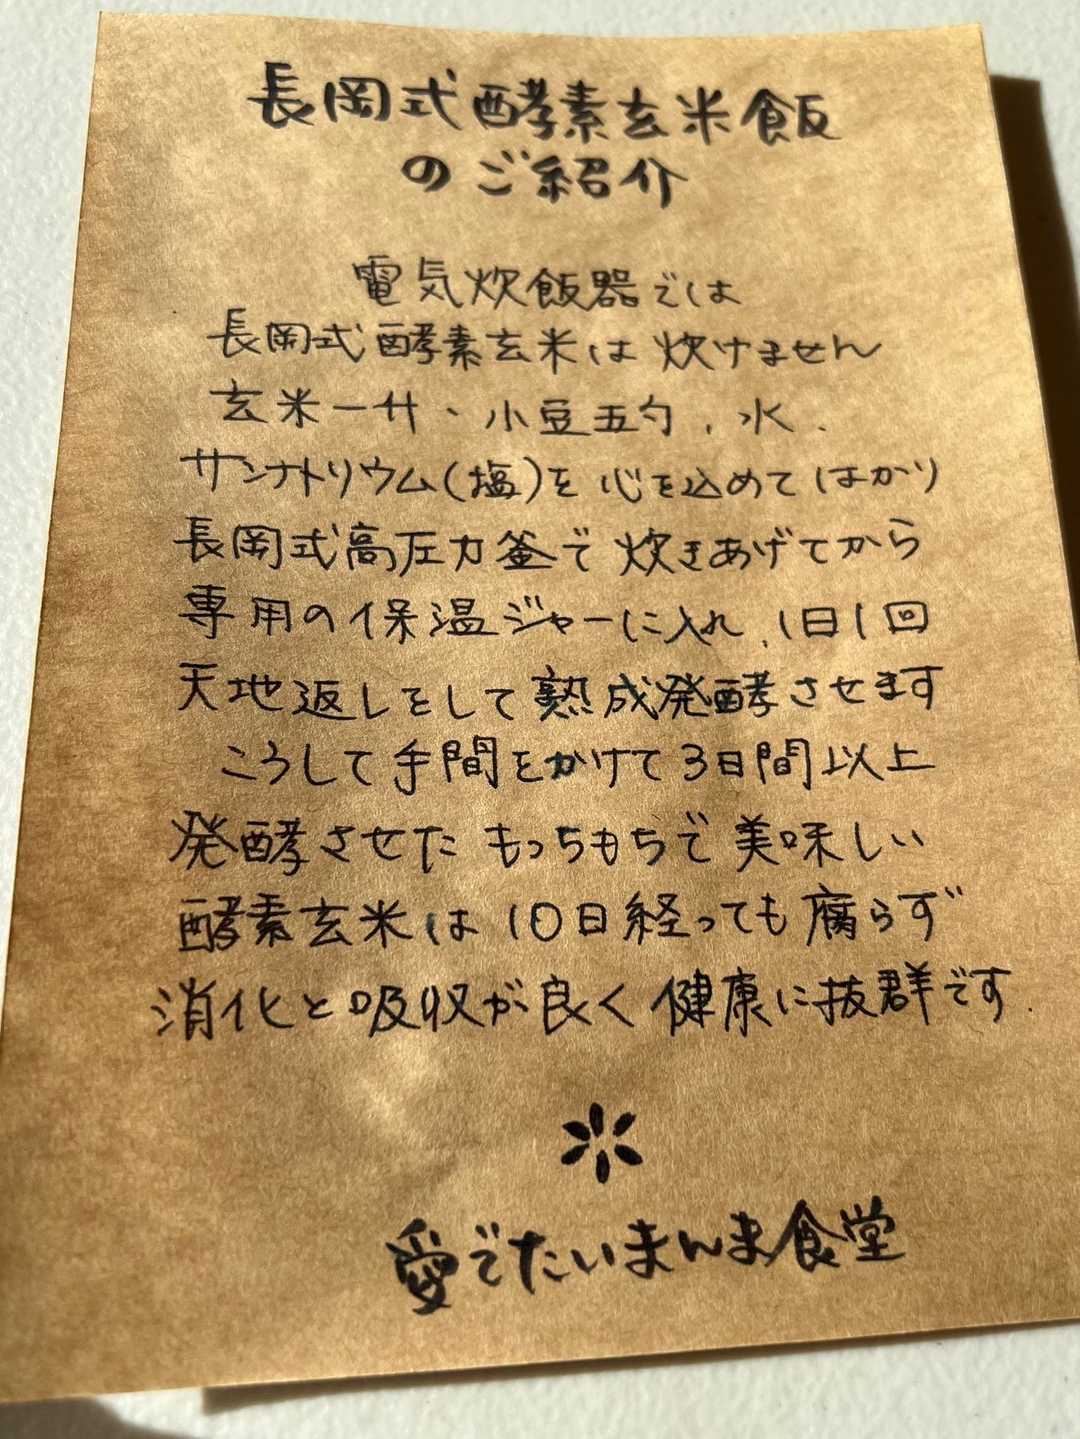 長岡式酵素玄米飯
のご紹介
電気炊飯器では
長岡式酵素玄米は炊けません
玄米一升、小豆五勺、水、
サンナトリウム(塩)を心を込めてはかり
長岡式高圧力釜で炊きあげてから
専用の保温ジャーに入れ、1日1回
天地返しをして熟成発酵させます
こうして手間をかけて3日間以上
発酵させたもっちもちで美味しい
酵素玄米は10日経っても腐らず
消化と吸収が良く健康に抜群です.
愛でたいまんま食堂